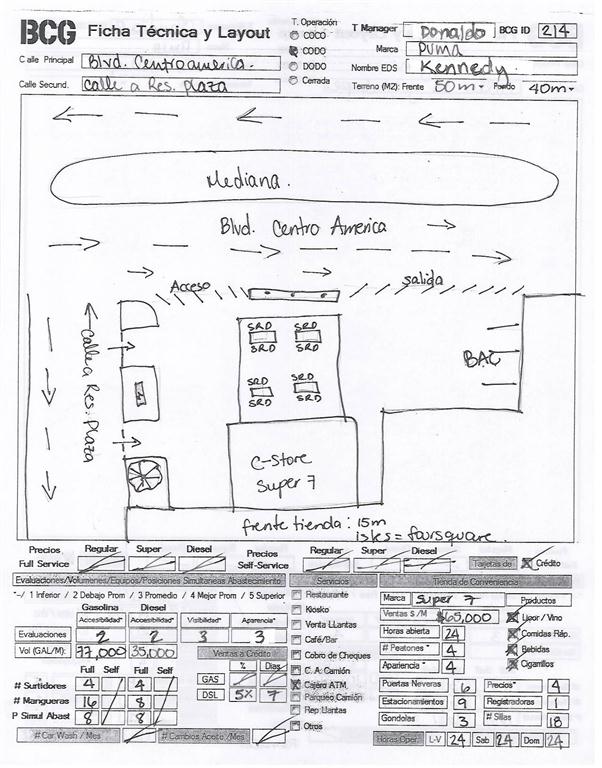 BCG Ficha Técnica y Layout
T. Operación
COCO
CODO
DODO
Cerrada
T Manager Donaldo BCG ID 214
Marca PUMA
Nombre EDS Kennedy.
Terreno (M2): Frente 50m Fondo 40m
Calle Principal Blvd. Centroamerica.
Calle Secund. Calle a Res. Plaza
Mediana.
Blvd. Centro America
Acceso
salida
Calle a Res. Plaza
SRD SRD
SRD SRD
SRD SRD
SRD SRD
BAC
C-Store
Super 7
frente tienda: 15m
isles = foursquare.
Precios Regular Super Diesel Precios Regular Super Diesel
Full Service Self-Service Tarjetas de X Crédito
Evaluaciones/Volumenes/Equipos/Posiciones Simultaneas Abastecimiento
*-/ 1 Inferior / 2 Debajo Prom / 3 Promedio / 4 Mejor Prom / 5 Superior
Gasolina Diesel
Accesibilidad* Accesibilidad* Visibilidad* Aparencia*
Evaluaciones 2 2 3 3
Vol (GAL/M): 77,000 35,000 Ventas a Crédito
Full Self Full Self % Dias
# Surtidores 4 4 GAS
# Mangueras 16 8 DSL 5% 7
P Simul Abast 8 8
# Car Wash / Mes # Cambios Aceite /Mes
Servicios
Restaurante
Kiosko
Venta LLantas
Café/Bar
Cobro de Cheques
C. A. Camión
X Cajero ATM
Parqueo Camión
Rep Llantas
Otros
Tienda de Conveniencia
Marca Super 7 Productos
Ventas $ /M $65,000 X Licor / Vino
Horas abierta 24 X Comidas Ráp.
# Peatones * 4 X Bebidas
Apariencia * 4 X Cigarrillos
Puertas Neveras 6 Precios* 4
Estacionamientos 9 Registradoras 1
Gondolas 3 # Sillas 18
Horas Oper. L-V 24 Sab 24 Dom 24